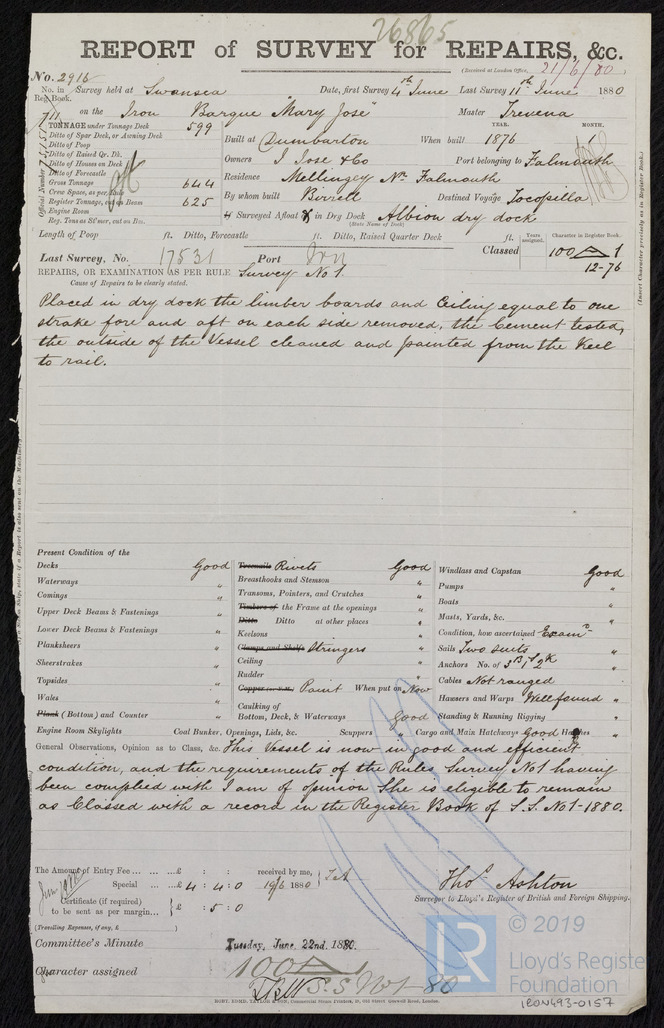 26865
REPORT of SURVEY for REPAIRS, &c.
No. 2916 (Received at London Office, 21/6/80
No. in Reg. Book. Survey held at Swansea Date, first Survey 4th June Last Survey 11th June 1880
711 on the Iron Barque "Mary Jose" Master Trevena
TONNAGE under Tonnage Deck 599
Ditto of Spar Deck, or Awning Deck
Ditto of Poop
Ditto of Raised Qr. Dk.
Ditto of Houses on Deck
Ditto of Forecastle
Gross Tonnage 644
Crew Space, as per Rule
Register Tonnage, 625
Engine Room
Reg. Tons as St'mer, cut on Bm.
Built at Dumbarton When built YEAR. 1876 MONTH. 1
Owners J Jose & Co Port belonging to Falmouth
Residence Mellingey Nr. Falmouth
By whom built Birrell Destined Voyage Tocopilla
Surveyed Afloat & in Dry Dock Albion dry dock
(State Name of Dock)
Length of Poop ft. Ditto, Forecastle ft. Ditto, Raised Quarter Deck ft.
Last Survey, No. 17531 Port
Classed Years assigned. Character in Register Book. 100 A 1
12-76
REPAIRS, OR EXAMINATION AS PER RULE Survey No 1
Cause of Repairs to be clearly stated.
(Insert Character precisely as in Register Book.)
Placed in dry dock the limber boards and Ceiling equal to one
strake fore and aft on each side removed, the Cement tested,
the outside of the Vessel cleaned and painted from the Keel
to rail.
Present Condition of the
Decks Good
Waterways "
Comings "
Upper Deck Beams & Fastenings "
Lower Deck Beams & Fastenings "
Planksheers "
Sheerstrakes "
Topsides "
Wales "
Plank (Bottom) and Counter "
Treenails Rivets Good
Breasthooks and Stemson "
Transoms, Pointers, and Crutches "
Timbers of the Frame at the openings "
Ditto Ditto at other places "
Keelsons "
Clamps and Shelfs Stringers "
Ceiling "
Rudder "
Paint When put on Now
Caulking of
Bottom, Deck, & Waterways Good
Windlass and Capstan Good
Pumps "
Boats "
Masts, Yards, &c. "
Condition, how ascertained Examd
Sails Two suits "
Anchors No. of 3B 1S 2K "
Cables Not ranged
Hawsers and Warps Well found "
Standing & Running Rigging "
Engine Room Skylights Coal Bunker, Openings, Lids, &c. Scuppers " Cargo and Main Hatchways Good Hatches "
General Observations, Opinion as to Class, &c. This Vessel is now in good and efficient
condition, and the requirements of the Rules Survey No 1 having
been complied with I am of opinion She is eligible to remain
as Classed with a record in the Register Book of S.S. No 1-1880.
The Amount of Entry Fee ... £ : : received by me,
Special ... £ 4 : 4 : 0 19/6 1880
Certificate (if required) to be sent as per margin... £ : 5 : 0
(Travelling Expenses, if any, £ )
Thos. Ashton
Surveyor to Lloyd's Register of British and Foreign Shipping.
Committee's Minute Tuesday, June 22nd. 1880.
Character assigned 100 A
S.S No 1 - 80
© 2019
LR
Lloyd's Register
Foundation
IRON493-0157